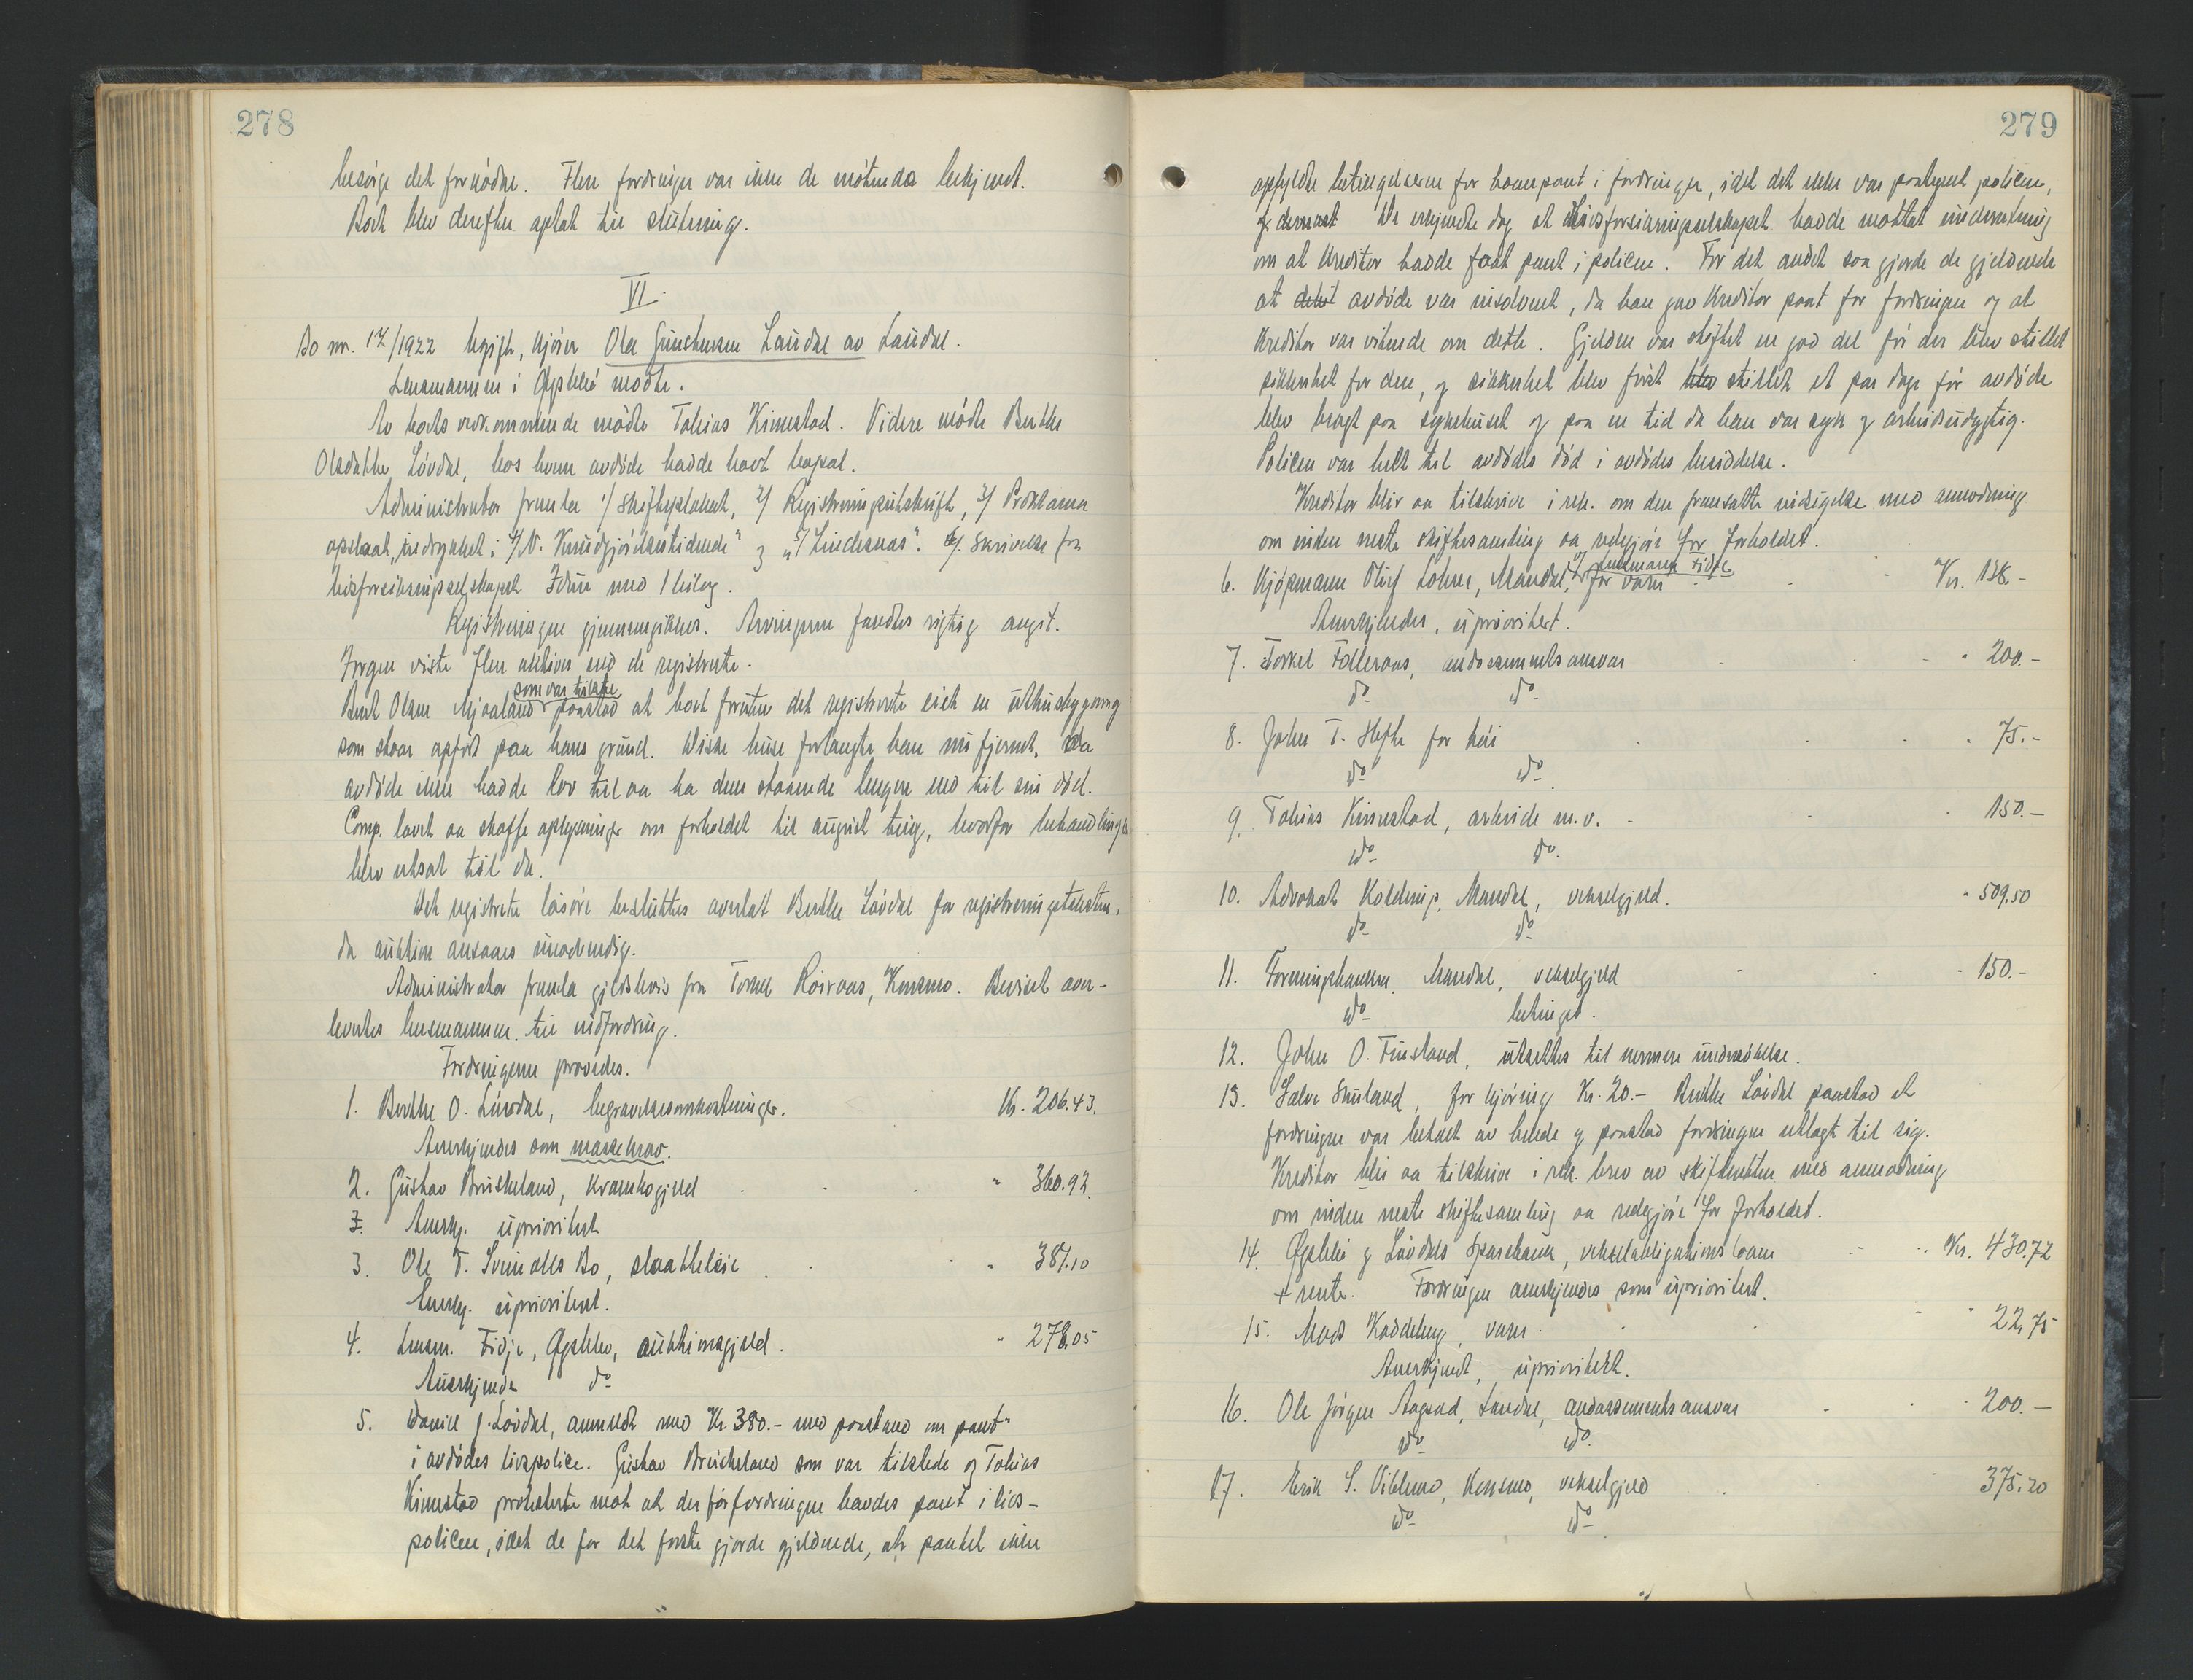 278
besørge det fornødne. Flere fordringer var ikke de møtende bekjent.
Boet blev derefter optat til slutning.
VI.
Bo nr. 17/1922 Ole Gunstensen Laudal av Laudal.
Lensmannen i Øyslebø møtte.
Av boets vedkommende mødte Tobias Kimestad. Videre mødte Berthe
Olsdatter Løvdal, hos hvem avdøde hadde havt bopæl.
Administrator fremla 1/ skifteplakat, 2/ Registreringsutskrift, 3/ Proklama
opslaat, indrykket i 4/ N. Kundgjørelsestidende" og 5/ "Lindesnes". 6/ Skrivelse fra
livsforsikringsselskapet Idun med 1 bilag.
Registreringen gjennemgikkes. Arvingerne fandtes rigtig angit.
Ingen viste flere aktiver end de registrerte.
som var tilstede
Bent Olsen Mjaaland paastod at boet foruten det registrerte eiet en uthusbygning
som staar opført paa hans grund. Disse huse forlangte han nu fjernet, da
avdøde ikke hadde lov til aa ha dem staaende lenger end til sin død.
Comp. lovet aa skaffe oplysninger om forholdet til august ting, hvorfor behandlingen
blev utsat til da.
Det registrerte løsøre besluttes averlat Berthe Løvdal for registreringstaksten,
da auktion ansaaes unødvendig.
Administrator fremla gjeldsbevis fra Torkel Røiraas, Konsmo. Beviset over-
levertes lensmannen til indfordring.
Fordringerne prøvedes.
1. Berthe O. Løvdal, begravelsesomkostninger. Kr. 206.43.
Anerkjendes som massekrav.
2. Gustav Bruskeland, kramkogjeld " 360.92.
3. Anerkj. uprioritert
3. Ole T. Svindlts Bo, slaatteleie " 387.10
Anerkj. uprioritert.
4. Lensm. Fidje, Øyslebø, auktionsgjeld. " 278.05
Anerkjendes do
5. Daniel J. Løvdal, anmeldt med Kr. 380.- med paastand om pant
i avdødes livspolice. Gustav Bruskeland som var tilstede og Tobias
Kimestad protesterte mot at der for fordringen havdes pant i livs-
policen, idet de for det første gjorde gjeldende, at pantet ikke
279
opfyldte betingelserne for haanpant i fordringer, idet det ikke var paategnet policen,
og dernæst De erkjendte dog at livsforsikringsselskapet hadde mottat underretning
om at kreditor hadde faat pant i policen. For det andet saa gjorde de gjeldende
at avdøde var insolvent, da han gav kreditor pant for fordringen og at
kreditor var vitende om dette. Gjelden var stiftet en god del før der blev stillet
sikkerhet for den, og sikkerhet blev først blev stillet et par dage før avdøde
blev bragt paa sykehuset og paa en tid da han var syk og arbeidsudygtig.
Policen var helt til avdødes død i avdødes besiddelse.
Kreditor blir aa tilskrive i rek. om den fremsatte indsigelse med anmodning
om inden neste skiftesamling aa redegjøre for forholdet.
6. Kjøpmann Oluf Lohne, Mandal, v/ lensmann Fidje for varer Kr. 138.-
Anerkjendes, uprioritert.
7. Torkel Folleraas, endossementsansvar " 200.-
do do
8. John T. Hefte for høi " 75.-
do do
9. Tobias Kimestad, arbeide m.v. 150.-
do do
10. Advokat Kolderup, Mandal, vekselgjeld. " 509.50
do do
11. Foreningsbanken, Mandal, vekselgjeld " 150.-
do betinget.
12. John O. Finsland, utsettes til nermere undersøkelse.
13. Salve Skuland, for kjøring Kr. 20.- Berthe Løvdal paastod at
fordringen var betalt av hende og paastod fordringen utlagt til sig.
Kreditor blir aa tilskrive i rek. brev av skifteretten med anmodning
om inden neste skiftesamling aa redegjøre for forholdet.
14. Øyslebø og Løvdals Sparebank, vekselobligationslaan Kr. 430.72
+ rente. Fordringen anerkjendes som uprioritert.
15. Mads Kaddeberg, varer " 22,75
Anerkjendt, uprioritert.
16. Ole Jørgen Aagesed, Laudal, endossementsansvar " 200.-
do do
17. Erik S. Viblemo, Konsmo, vekselgjeld " 375.20
do do